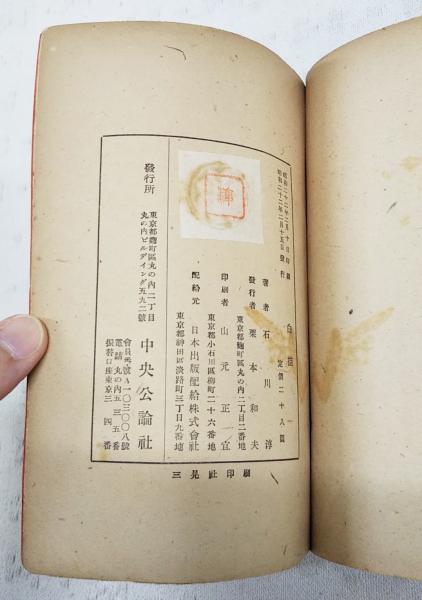 昭和二十二年二月十日印刷
昭和二十二年二月十五日發行
白描
定價二十八圓
著者 石川淳
發行者 栗本和夫
東京都麹町區丸の内二丁目二番地
印刷者 山元正宜
東京都小石川區柳町二十六番地
配給元 日本出版配給株式會社
東京都神田區淡路町三丁目九番地
發行所
東京都麹町區丸の内二丁目
丸の内ビルデイング五九二號
中央公論社
會員番號A一〇三〇〇八號
電話丸の内五三五番
振替口座東京三四番
三晃社印刷